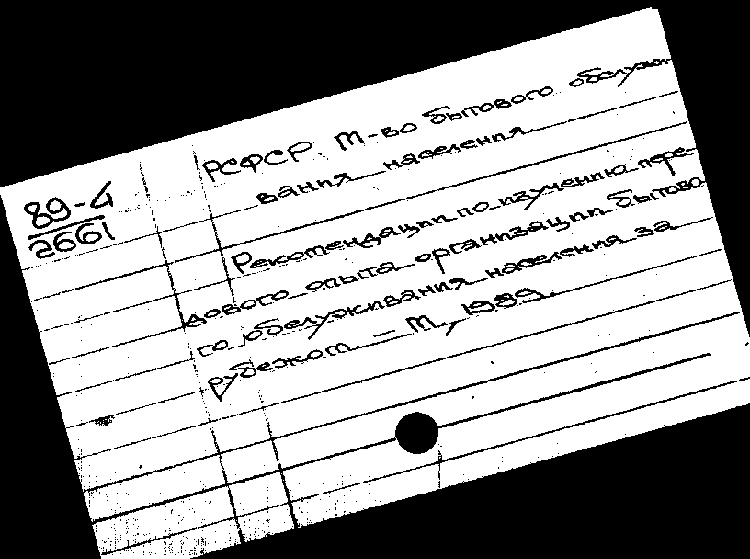 89-4
2661
РСФСР. М-во бытового обслужи-
вания населения
Рекомендации по изучению пере-
дового опыта организации бытово
го обслуживания населения за
рубежом. – М, 1989.